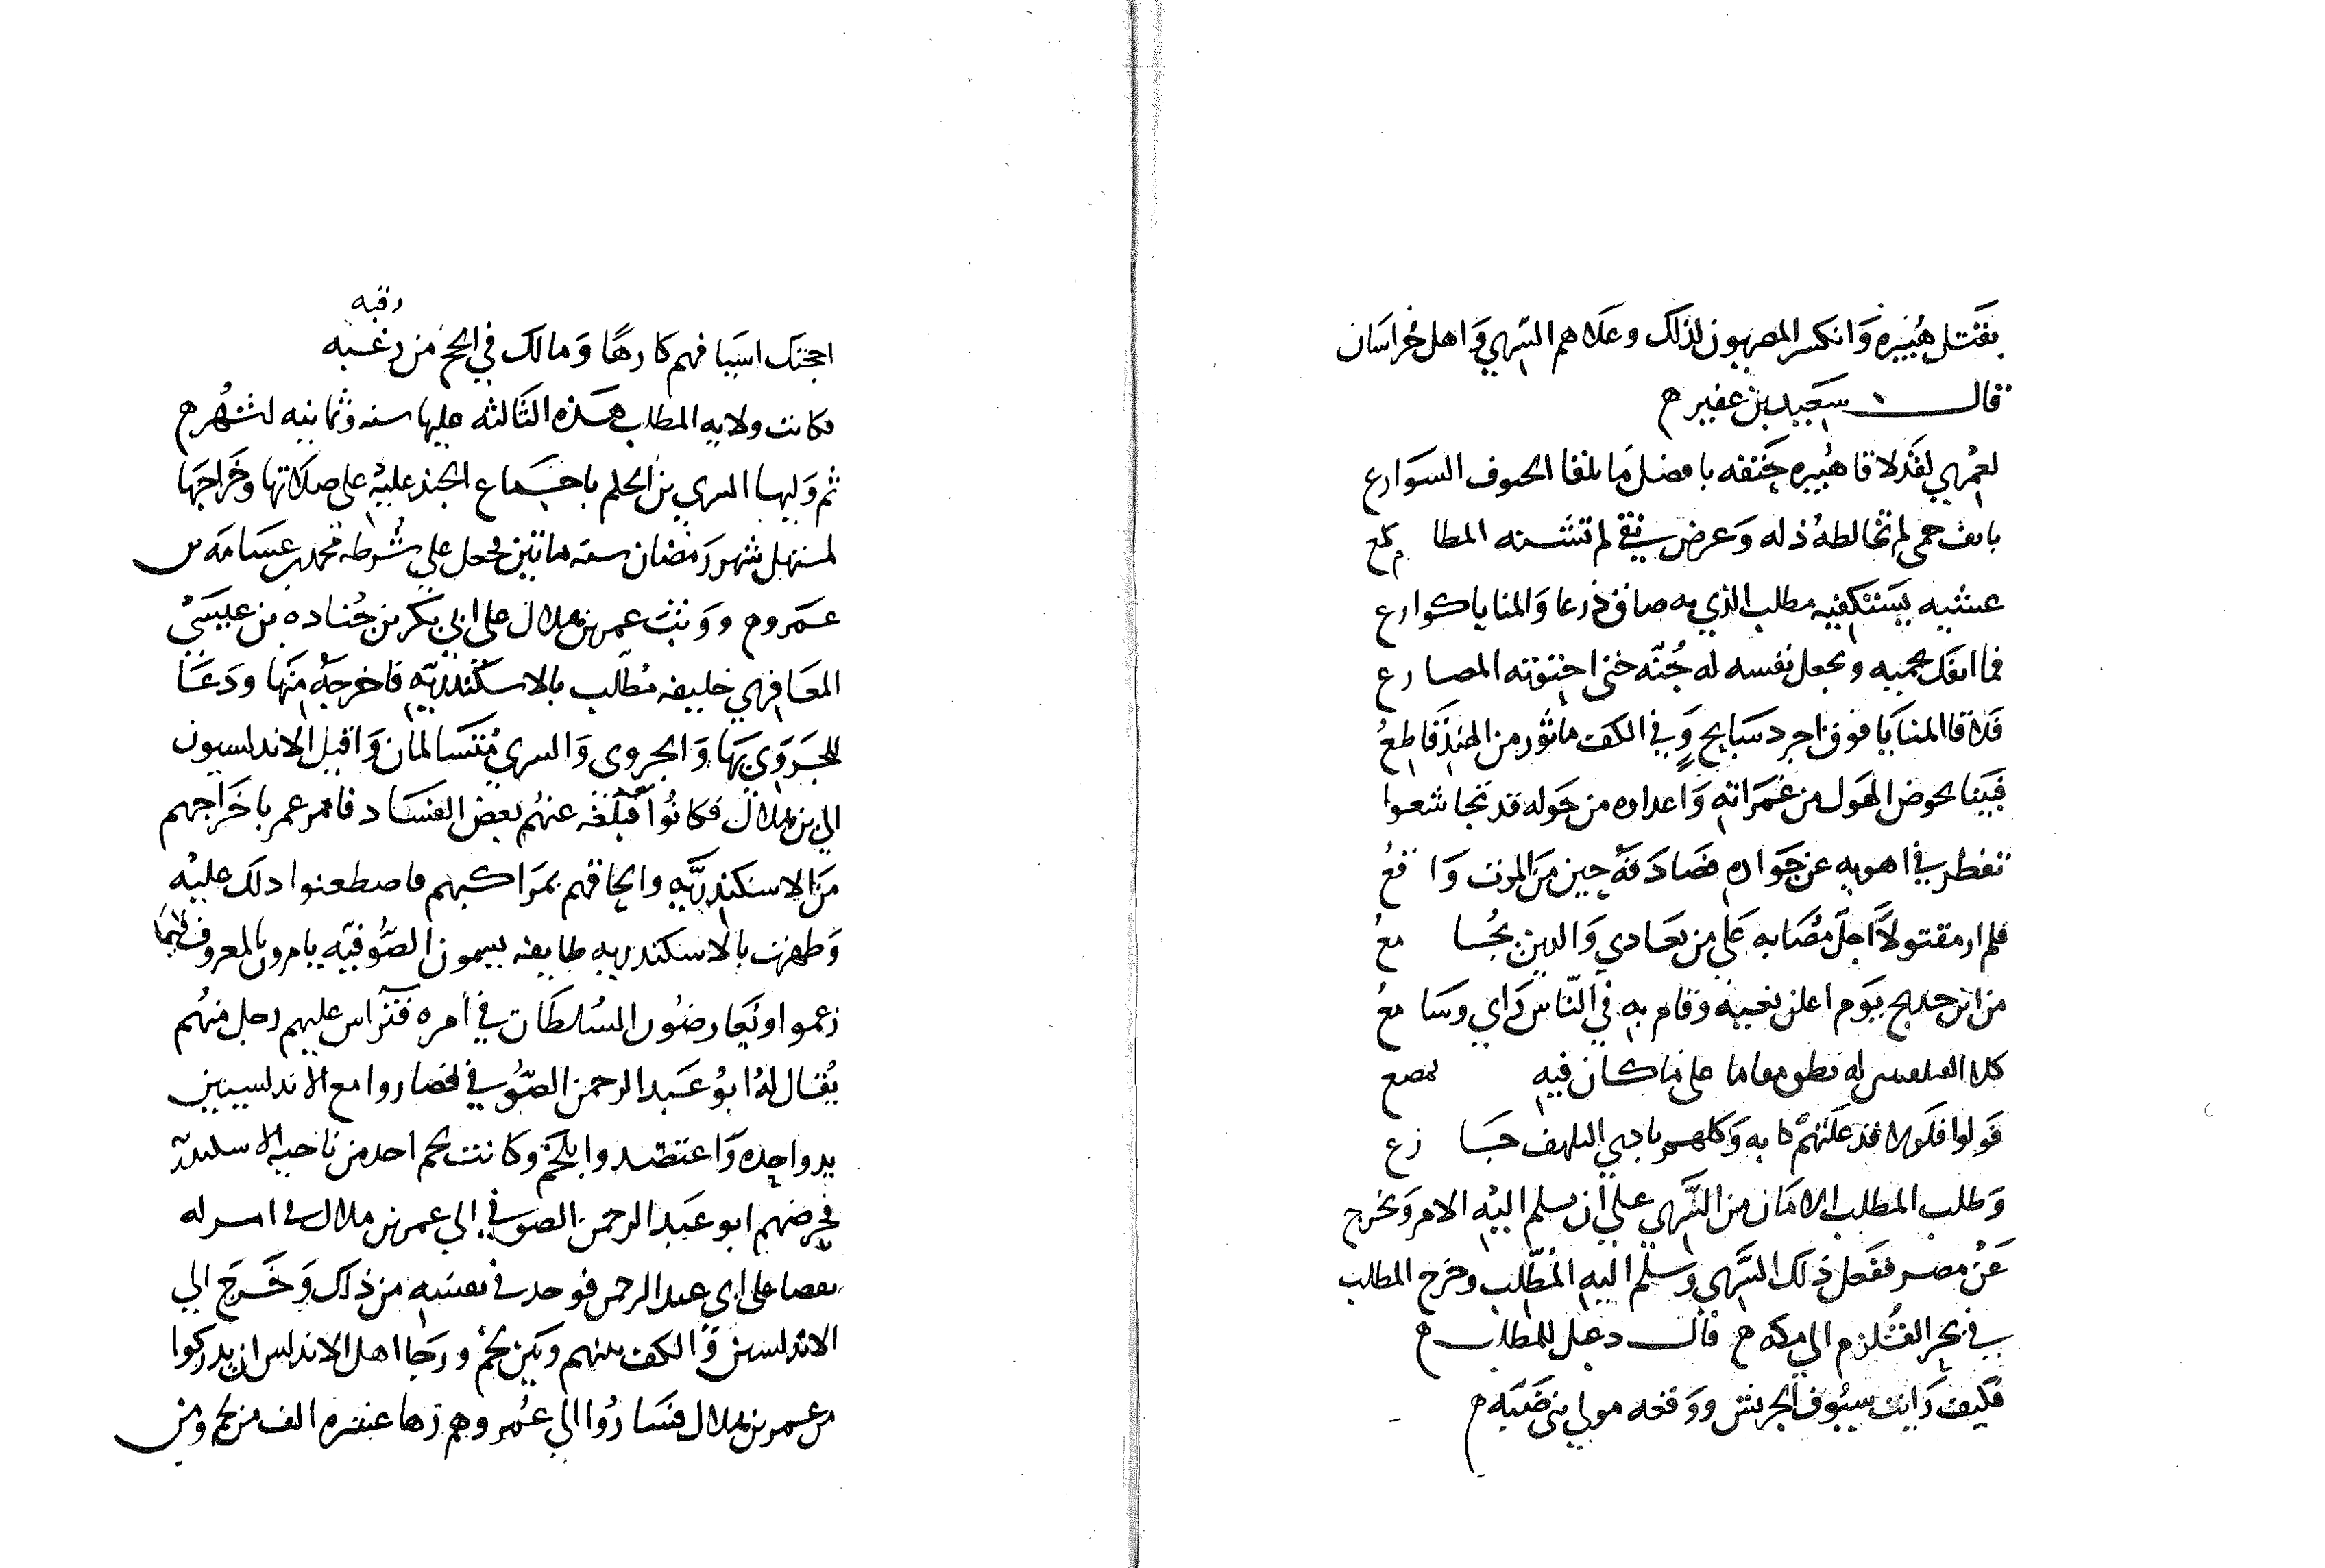 بقتل هُبيره وَانكسر المصريون لذلك وعلاهم السّري وَاهل خُراسَان
قال سعيد بن عفير
لعمري لقد لاقا هُبيره حتفه بافضل مَا يلقا الحتوف السوَارع
بانف حمى لم تخالطهُ ذله وَعرض نقي لم تشنه المطامع
عشيه يستكفيه مطلب الذي به ضاق ذرعا وَالمنايا كوارع
فما انفك يحميه ويجعل نفسه له جُنّه حتى احتوته المصارع
فلاقا المنايا فوق اجرد سَابح وَفي الكف ماثور من الهند قاطعُ
فبَينا يخوض الهَول من غمَراته وَاعداوه من حَوله قد تخاشعوا
تقطر في اهويه عن جوَاده فصَادَفهُ حين من الموت وَاقعُ
فلم ار مقتولاً اجلّ مصَابه عَلى من يعَادي وَالذين يُجامعُ
من ابن حديج يَوم اعلن نعيه وقام به في النّاس رَاي وسَامعُ
كلا له على مَا كان فيه
فَولوا فلولا قد علتهم كابه وَكلهم بادي التلهف جَازع
وَطلب المطلب الامَان من السَّري عَلي ان يسلم اليْه الامر وَيخرج
عَنْ مصر ففعل ذلك السَّري وسلم اليه المُطّلب وخرج المطلب
في بحر القُلزم الي مكه قال دعبل للمطلب
فكيف رَايت سيُوف الحريش ووَقعه مولي بني ضَبّه
رقبه
احجتك اسيافهم كارهًا وَمالك في الحج من رغبه
فكانت ولايه المطلب هذه الثَالثه عليها سنه وَثمانيه اشهُر
ثم وَليها السري بن الحكم باجماع الجند عليْه على صلاتها وَخراجَها
لمستهل شهر رَمضان سنه ماتين فجعل علي شُرطه محمد بن عسَامَه بن
عمَرو وَوَثبَ عمر بن ملال على ابي بكر بن جُناده بن عيسَي
المعَافري خليفه مُطّلب بالاسكندريّه فاخرجهُ منَها ودَعَا
للجَروَي بَها وَالجروى وَالسري مُتسَالمان وَاقبل الاندلسيون
الي بن ملال فكانُوا فبلَغه عنهُم بعض الفسَاد فامر عمر باخرَاجهم
منَ الاسكندريّه والحاقهم بمرَاكبهم فاصطغنوا ذلك عليْه
وَظهرت بالاسكندريه طايفه يسمون الصُّوفيّه يامرون بالمعروف فيما
زعموا ويُعَارضُون السُلطَان في امره فتراس عليهم رجل منهُم
يُقال لهُ ابوُ عَبد الرحمن الصّوُفي فصَاروا مع الاندلسيين
يد واحده وَاعتضدوا بلخم وكانت لخم احد من ناحيه الاسكندريه
فخرضهم ابو عَبد الرحمن الصوفي الي عمر بن ملال في امر له
فقضا على ابي عبد الرحمن فوجد في نفسَه من ذلك وَخَرجَ الي
الاندلسين وَالف بينهم وبَين لخم ورجَا اهل الاندلس ان يدركوا
من عمر بن ملال فسَارُوا الي عُمر وهم زها عشره الف من لخم ومن